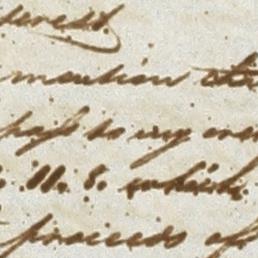 terest.
mention
pass to my
.11. 8. which
proceeds of